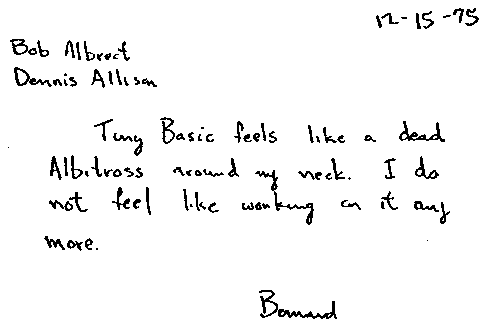 12-15-75
Bob Albrect
Dennis Allison
Tiny Basic feels like a dead
Albitross around my neck. I do
not feel like working on it any
more.
Bernard